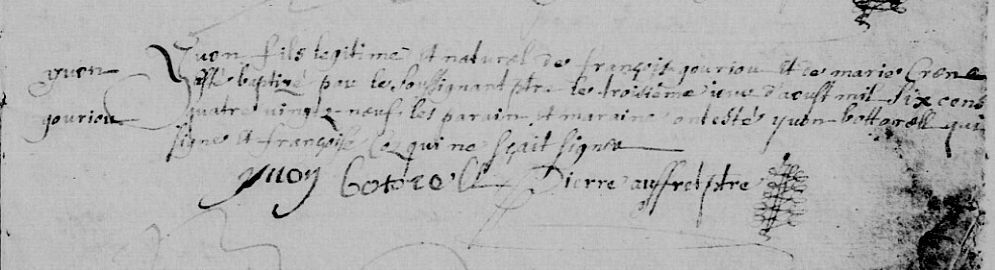 yuon
gouriou
Yuon fils legitime et naturel de françois gouriou et de marie Crene
esté baptizé par le soussignant ptre le troisième iour d'aoust mil six cens
quatre vingtz neuf les parain et maraine ont estés yuon bottorell qui
signe et françoise qui ne sçait signer
yuon botorel Pierre auffret ptre